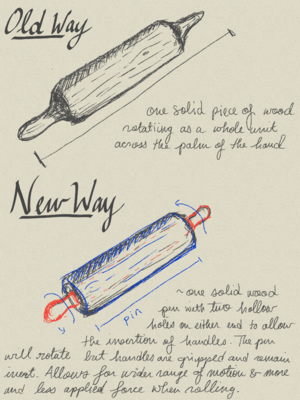 Old Way
one solid piece of wood
rotating as a whole unit
across the palm of the hand
New Way
pin
~one solid wood
pen with two hollow
holes on either end to allow
the insertion of handles. The pin
will rotate but handles are gripped and remain
inert. Allows for wider range of motion & more
and less applied force when rolling.